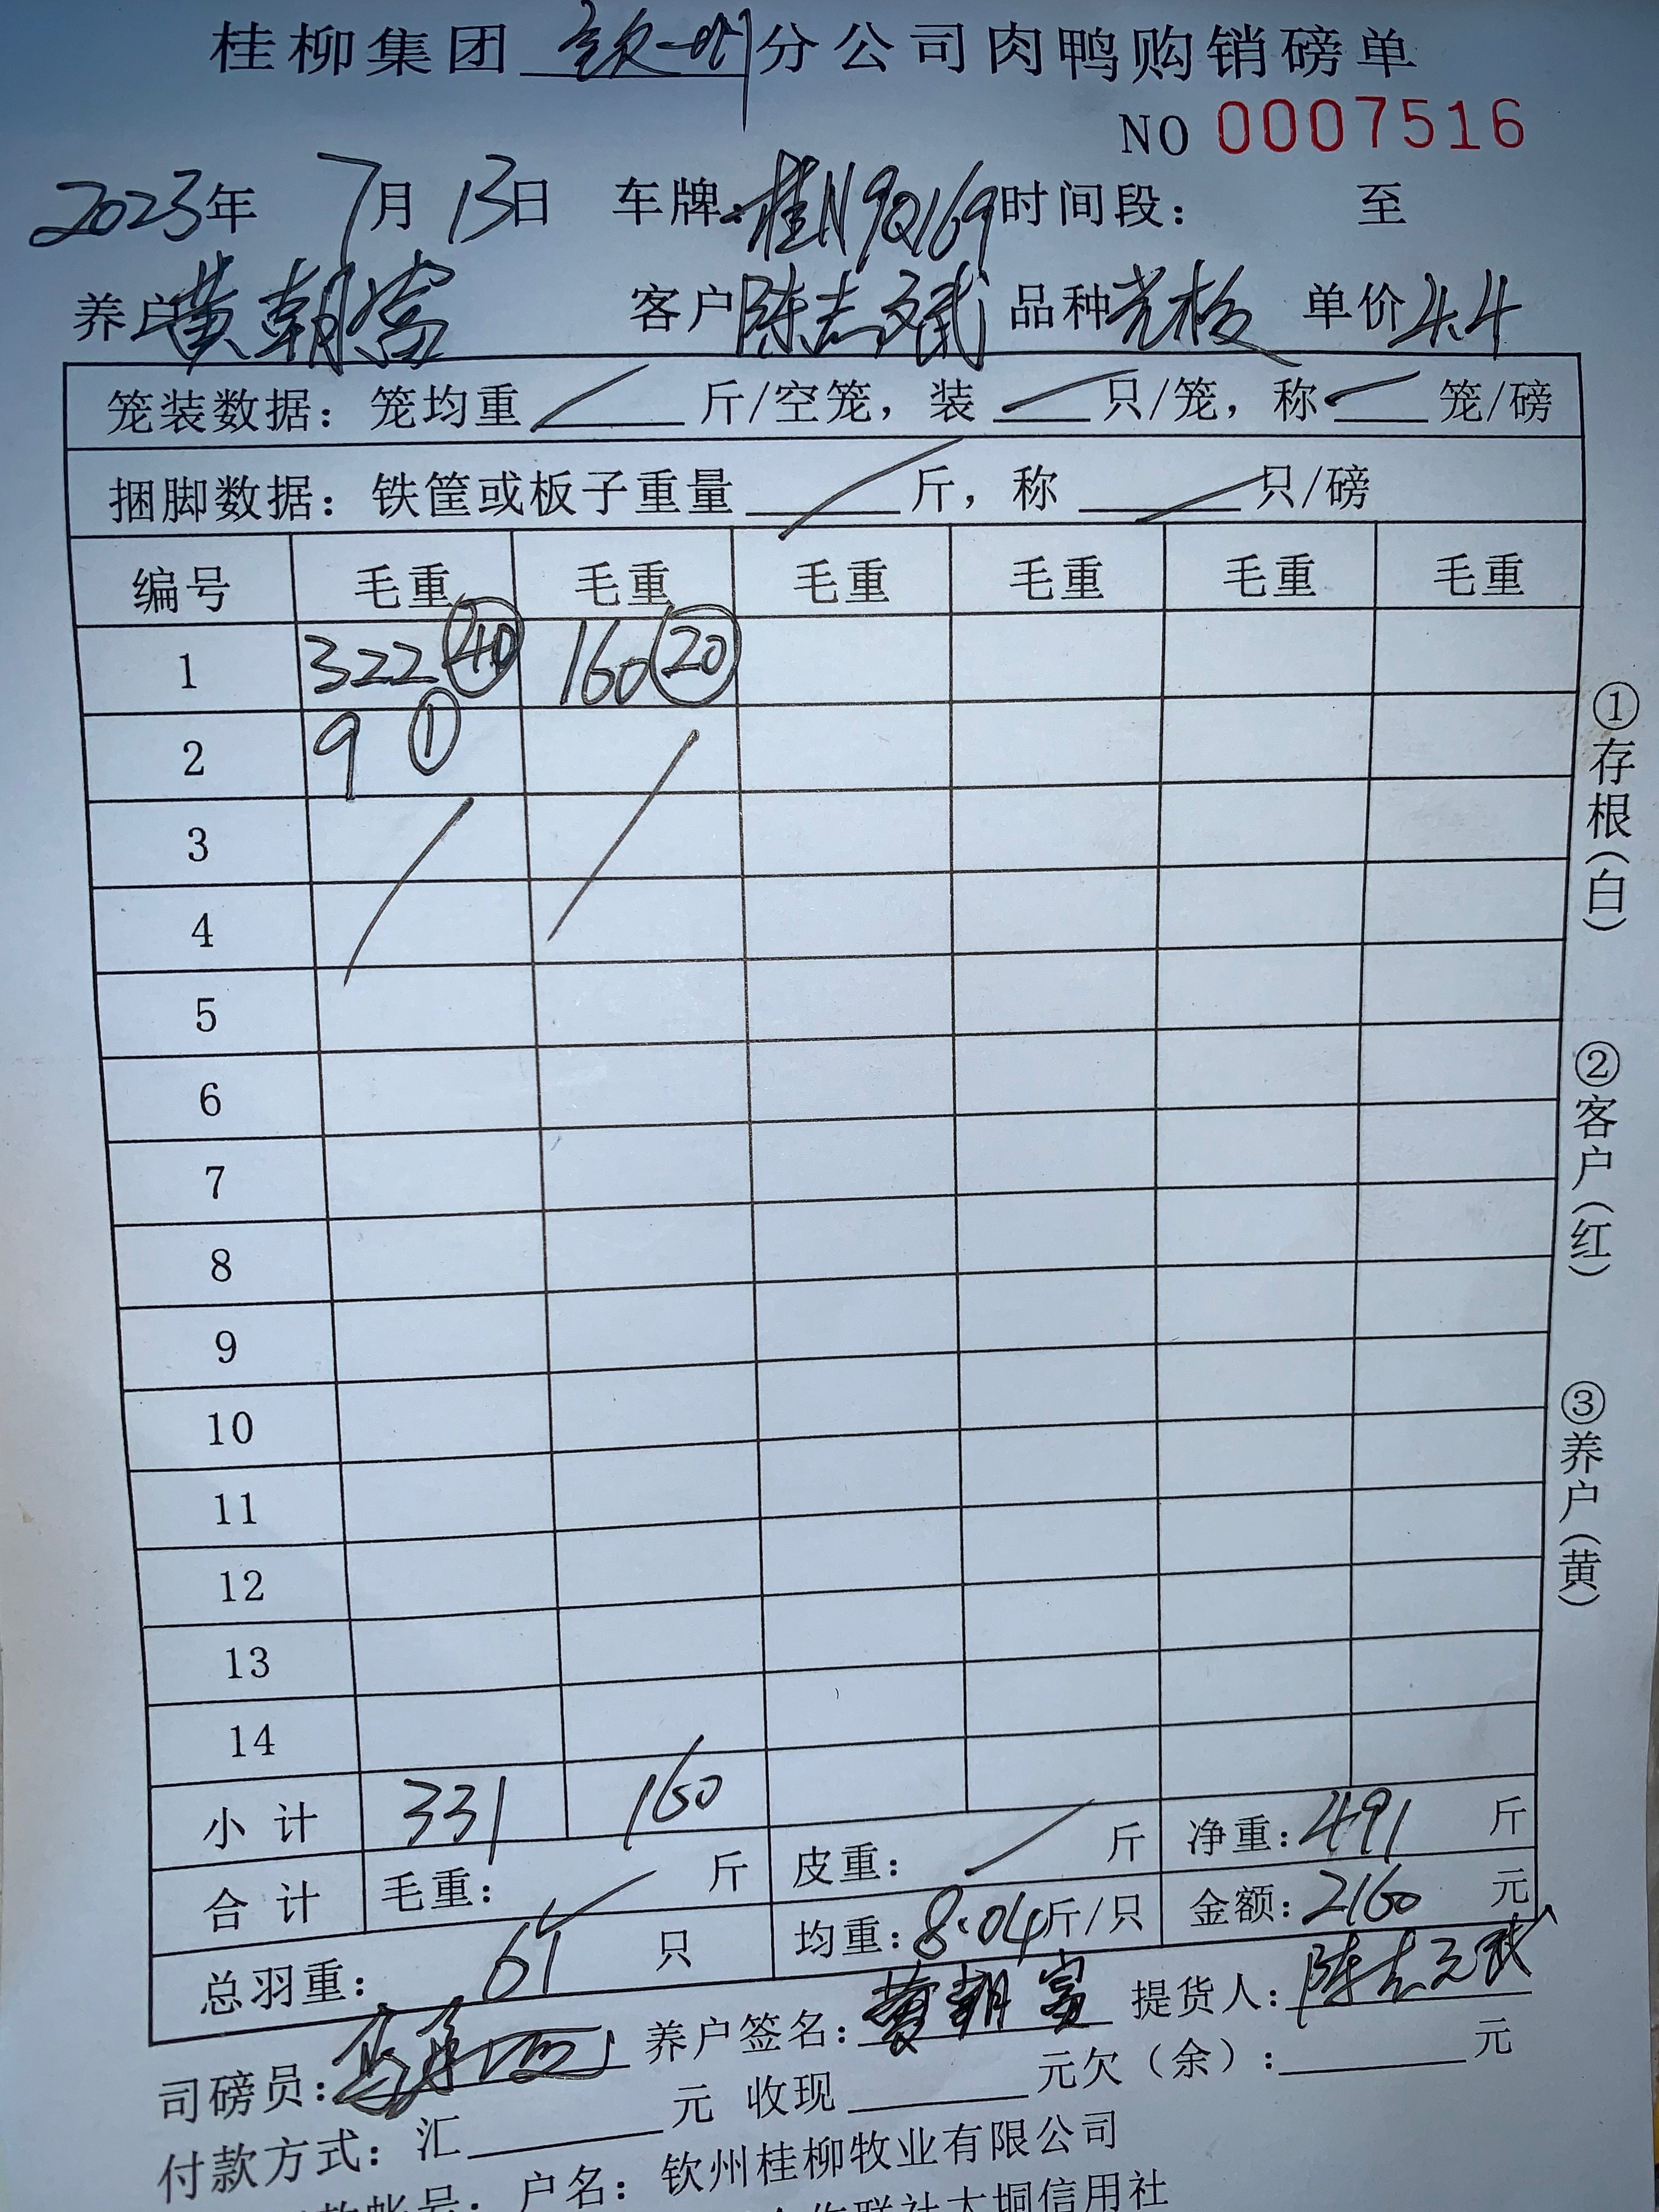 桂柳集团 钦州 分公司肉鸭购销磅单
NO 0007516
2023年 7月 13日 车牌:桂N9Q169 时间段: 至
养户 黄朝富 客户 陈志斌 品种 光板 单价 4.4
笼装数据: 笼均重 / 斤/空笼, 装 / 只/笼, 称 / 笼/磅
捆脚数据: 铁筐或板子重量 / 斤, 称 / 只/磅
编号 毛重 毛重 毛重 毛重 毛重 毛重
1 322 ㊵ 160 ⑳
2 9 ①
3
4
5
6
7
8
9
10
11
12
13
14
小计 331 160
合计 毛重: / 斤 皮重: / 斤 净重: 491 斤
总羽重: 61 只 均重: 8.04 斤/只 金额: 2160 元
司磅员: 养户签名: 黄朝富 提货人: 陈志斌
付款方式: 汇 元 收现 元欠(余): 元
户名: 钦州桂柳牧业有限公司
联社大垌信用社
①存根(白)
②客户(红)
③养户(黄)